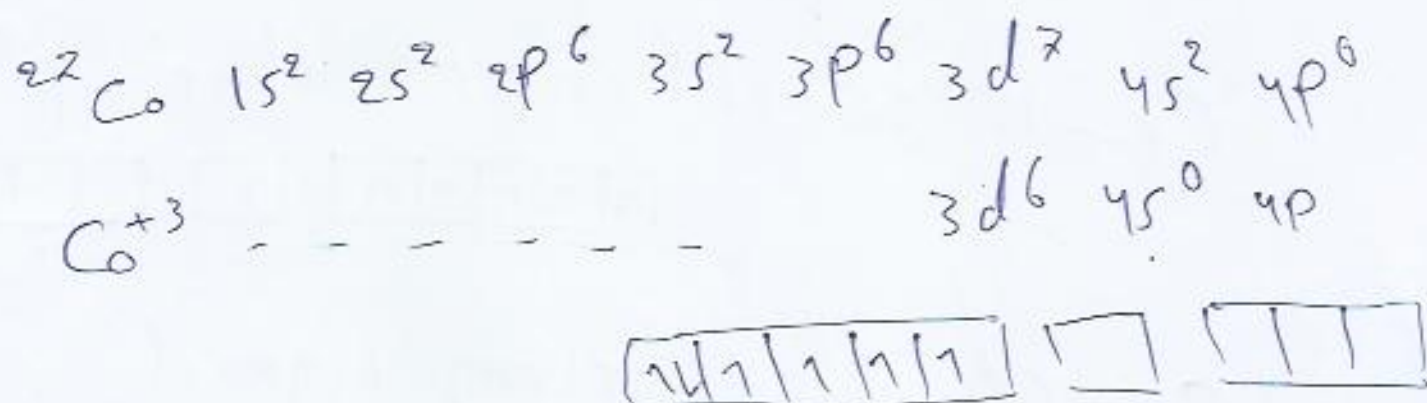 ²⁷Co 1s² 2s² 2p⁶ 3s² 3p⁶ 3d⁷ 4s² 4p⁰
Co⁺³ - - - - - - 3d⁶ 4s⁰ 4p
↑↓ ↑ ↑ ↑ ↑